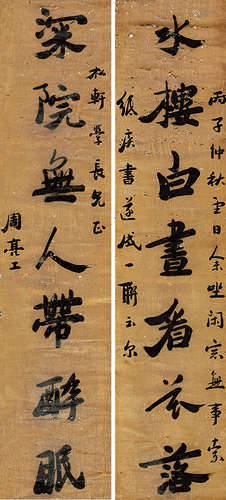 水樓白晝看花落
丙子仲秋雪日余坐閑窗無事索
紙疾書遂成一聯云尔
深院無人帶醉眠
松軒學長兄正
周亮工